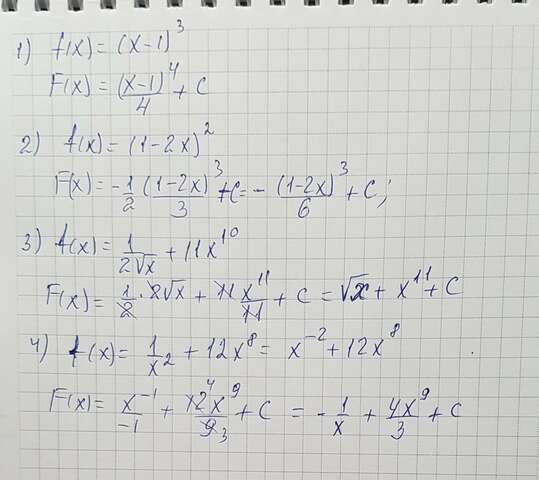 1) f(x) = (x-1)^3
F(x) = (x-1)^4/4 + C
2) f(x) = (1-2x)^2
F(x) = -1/2 (1-2x)^3/3 + C = - (1-2x)^3/6 + C;
3) f(x) = 1/(2√x) + 11x^10
F(x) = 1/2 · 2√x + 11x^11/11 + C = √x + x^11 + C
4) f(x) = 1/x^2 + 12x^8 = x^-2 + 12x^8
F(x) = x^-1/-1 + 12^4x^9/9_3 + C = - 1/x + 4x^9/3 + C